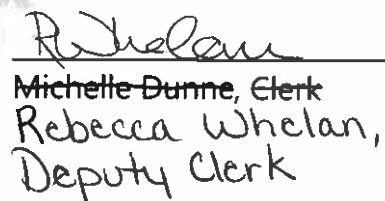 RWhelan
Michelle Dunne, Clerk
Rebecca Whelan,
Deputy Clerk